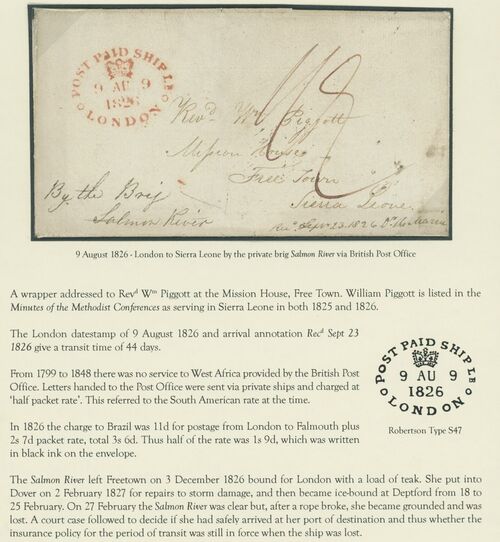 POST PAID SHIP LR
9 AU 9
1826
LONDON
Revd Wm Piggott
Mission House
Free Town
Sierra Leone
By the Brig
Salmon River
Recd Sept 23. 1826
9 August 1826 - London to Sierra Leone by the private brig Salmon River via British Post Office
A wrapper addressed to Revd Wm Piggott at the Mission House, Free Town. William Piggott is listed in the
Minutes of the Methodist Conferences as serving in Sierra Leone in both 1825 and 1826.
The London datestamp of 9 August 1826 and arrival annotation Recd Sept 23
1826 give a transit time of 44 days.
From 1799 to 1848 there was no service to West Africa provided by the British Post
Office. Letters handed to the Post Office were sent via private ships and charged at
'half packet rate'. This referred to the South American rate at the time.
In 1826 the charge to Brazil was 11d for postage from London to Falmouth plus
2s 7d packet rate, total 3s 6d. Thus half of the rate was 1s 9d, which was written
in black ink on the envelope.
POST PAID SHIP LR
9 AU 9
1826
LONDON
Robertson Type S47
The Salmon River left Freetown on 3 December 1826 bound for London with a load of teak. She put into
Dover on 2 February 1827 for repairs to storm damage, and then became ice-bound at Deptford from 18 to
25 February. On 27 February the Salmon River was clear but, after a rope broke, she became grounded and was
lost. A court case followed to decide if she had safely arrived at her port of destination and thus whether the
insurance policy for the period of transit was still in force when the ship was lost.